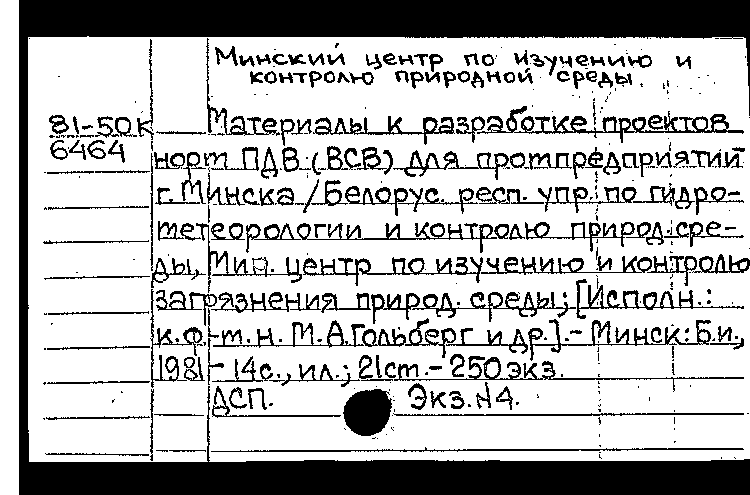 Минский центр по изучению и
контролю природной среды.
81-50к
6464
Материалы к разработке проектов
норм ПДВ (ВСВ) для промпредприятий
г. Минска / Белорус. респ. упр. по гидро-
метеорологии и контролю природ. сре-
ды, Мин. центр по изучению и контролю
загрязнения природ. среды; [Исполн.:
к.ф.-м.н. М.А. Гольберг и др.]. - Минск: Б.и.,
1981 - 14с., ил.; 21см. - 250 экз.
ДСП. Экз. №4.